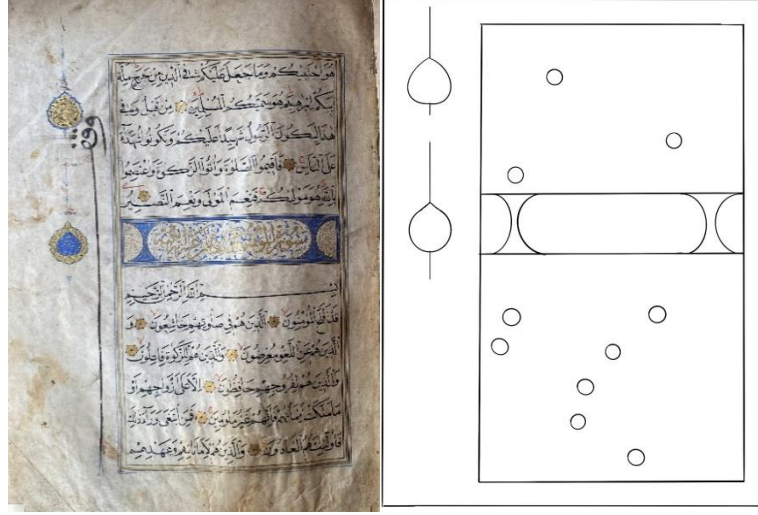 هو اجتبيكم وما جعل عليكم في الدين من حرج ملة
ابيكم ابرهيم هو سميكم المسلمين من قبل وفي
هذا ليكون الرسول شهيدا عليكم وتكونوا شهداء
على الناس فاقيموا الصلوة واتوا الزكوة واعتصموا
بالله هو موليكم فنعم المولى ونعم النصير
سورة المؤمنون
بسم الله الرحمن الرحيم
قد افلح المؤمنون الذين هم في صلوتهم خاشعون و
الذين هم عن اللغو معرضون والذين هم للزكوة فاعلون
والذين هم لفروجهم حافظون الا على ازواجهم او
ما ملكت ايمانهم فانهم غير ملومين فمن ابتغى وراء ذلك
فاولئك هم العادون والذين هم لاماناتهم وعهدهم
وقف